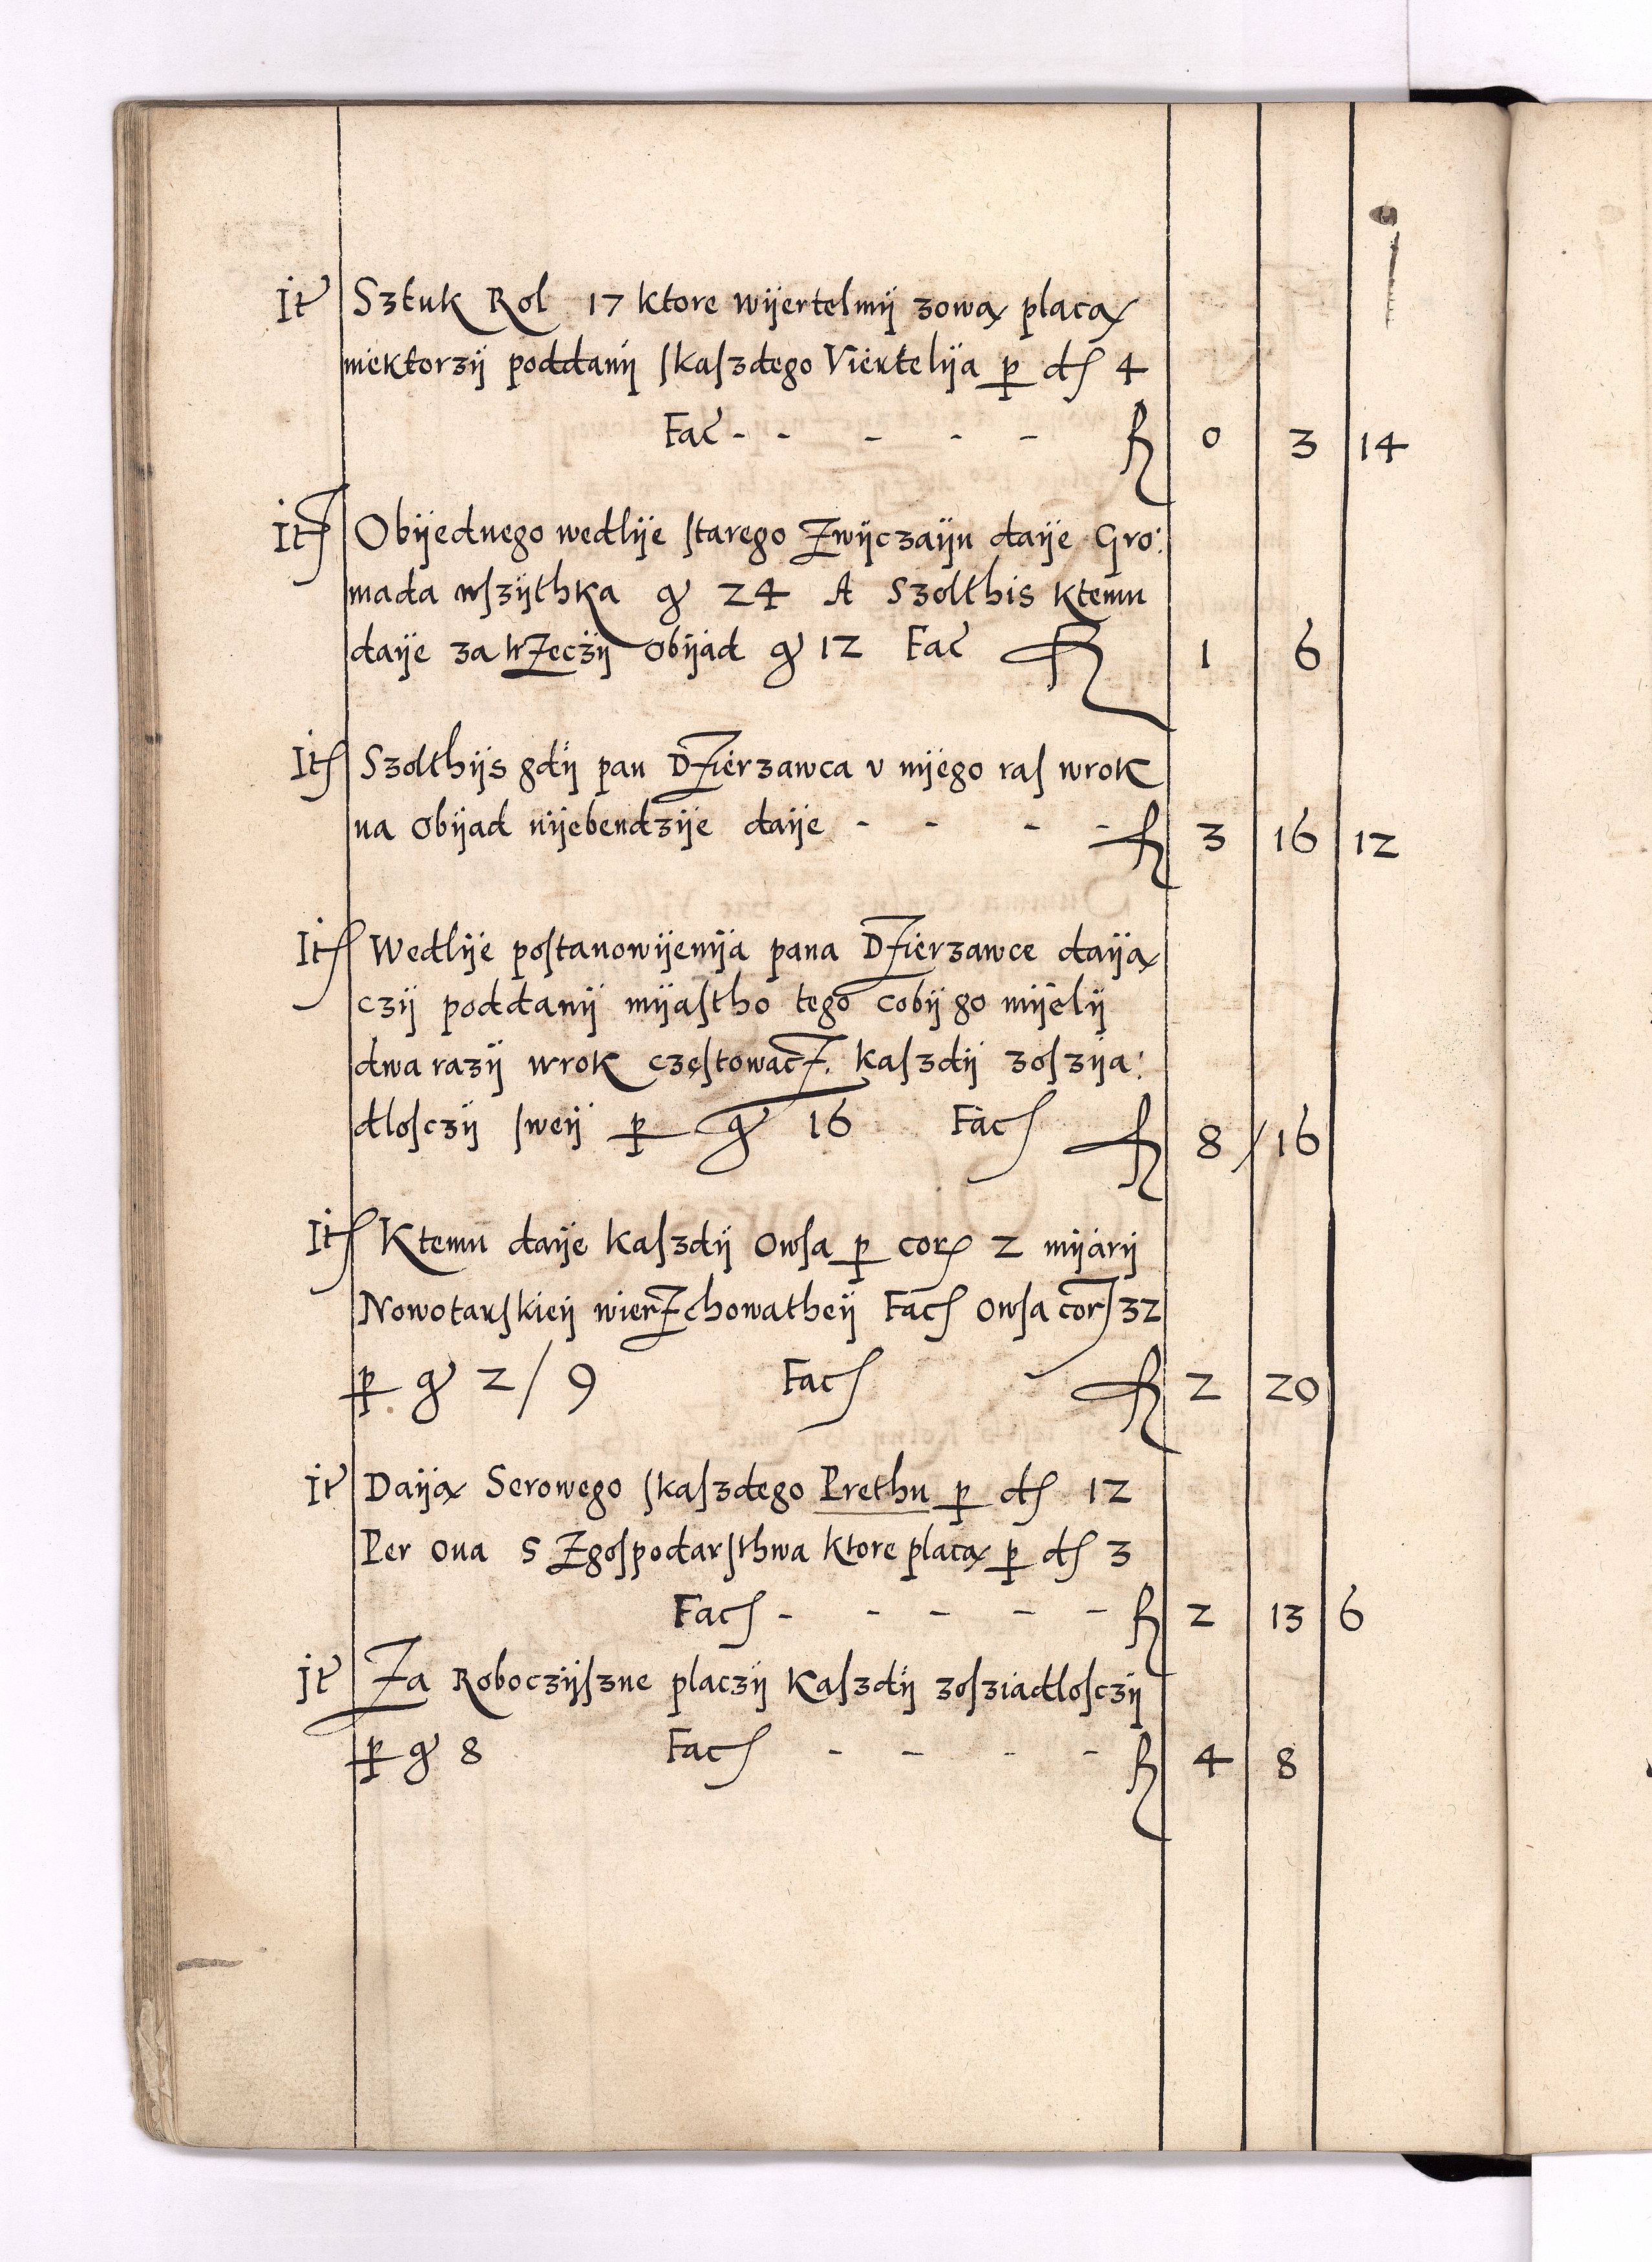 Jt Sztuk Rol 17 ktore wijertelmij zową placą
niektorzij poddanij skaszdego Viertelija p ds 4
Fac - - - - - R 0 3 14
Jts Obijednego wedlije starego Zwijczaiju daije Gro:
mada wszijthka gr 24 A Szolthis ktemu
daije za trzeczij obijad gr 12 Fac R 1 6
Jts Szolthijs gdij pan Dzierzawca v nijego ras wrok
na obijad nijebendzije daije - - - - R 3 16 12
Jts Wedlije postanowijenija pana Dzierzawce daiją
czij poddanij mijastho tego cobij go mijelij
dwa razij wrok częstowacz. kaszdij zoszija:
dlosczij sweij p gr 16 Facs R 8 / 16
Jts Ktemu daije kaszdij owsa p cor 2 mijarij
Nowotarskieij wierzchowatheij Facs owsa cors 32
p gr 2 / 9 Facs R 2 20
Jt Daiją Serowego skaszdego Prethu p ds 12
Per ova 5 Zgospodarsthwa ktore placą p ds 3
Facs - - - - - R 2 13 6
Jt Za Roboczijszne placzij kaszdij zosziadlosczij
p gr 8 Facs - - - - R 4 8